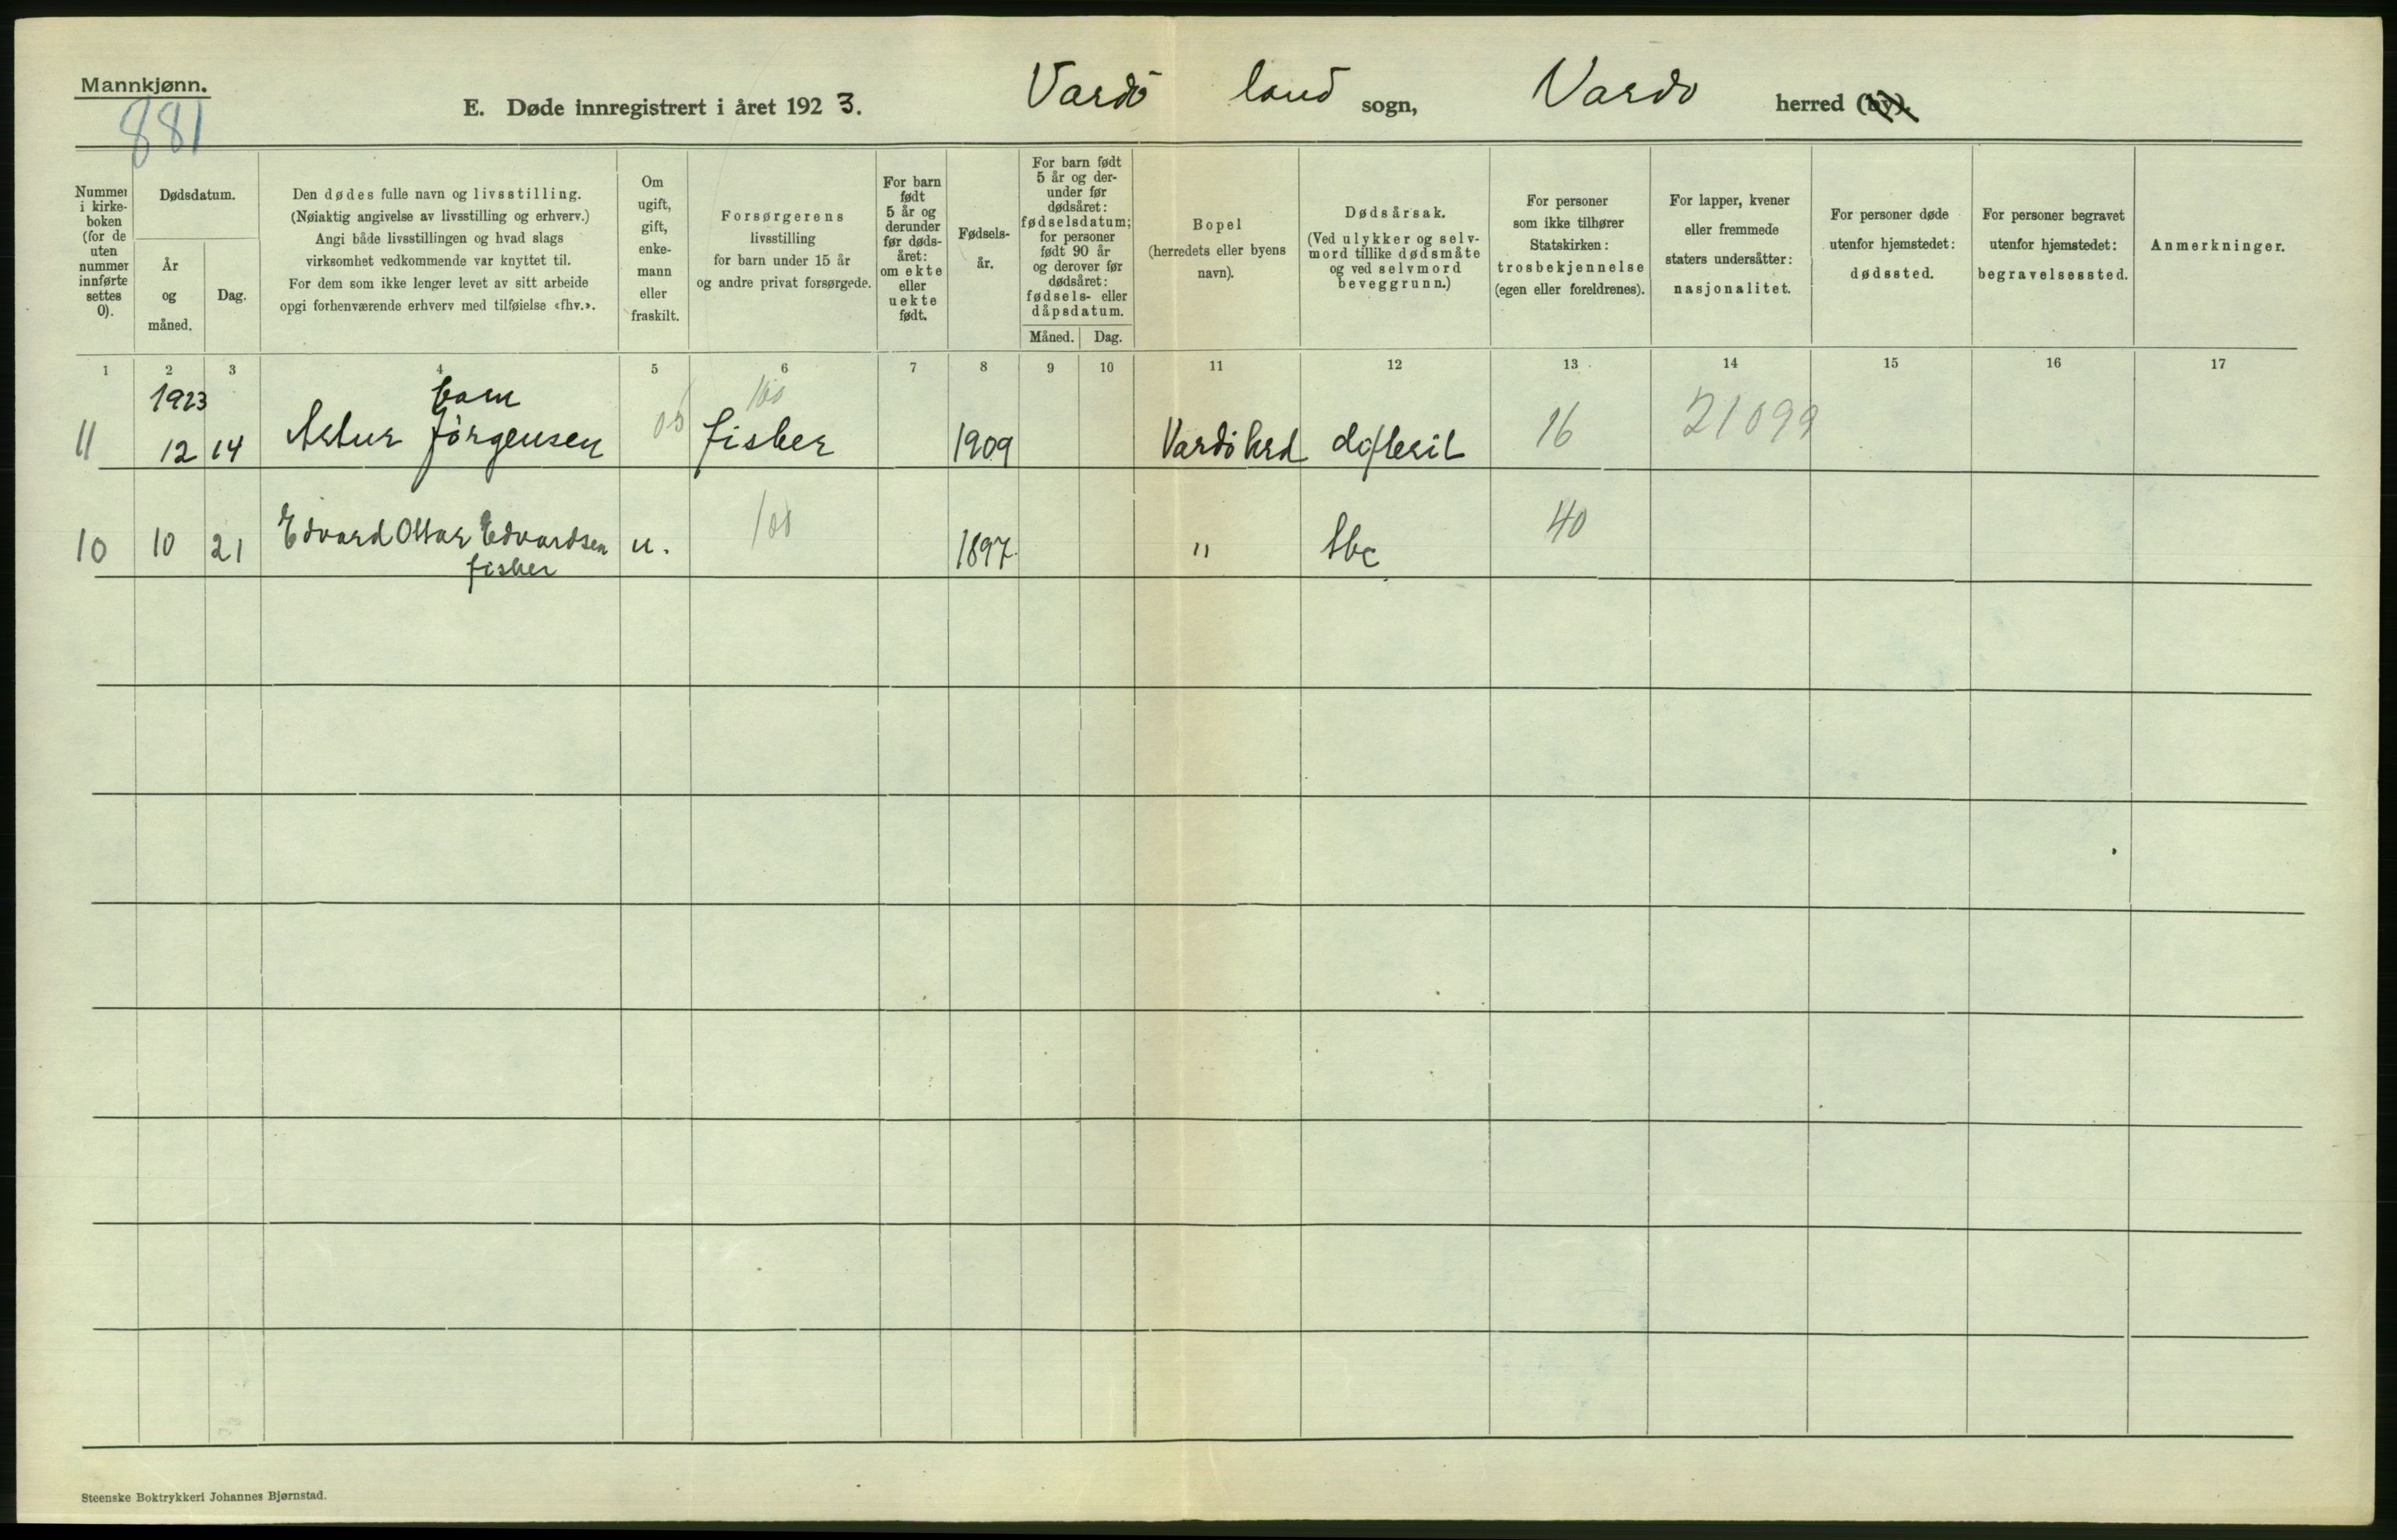 Mannkjønn.
881
E. Døde innregistrert i året 1923. Vardö land sogn, Vardö herred (by).
Nummer
i kirke-
boken
(for de
uten
nummer
innførte
settes
0).
Dødsdatum.
År
og
måned.
Dag.
Den dødes fulle navn og livsstilling.
(Nøiaktig angivelse av livsstilling og erhverv.)
Angi både livsstillingen og hvad slags
virksomhet vedkommende var knyttet til.
For dem som ikke lenger levet av sitt arbeide
opgi forhenværende erhverv med tilføielse «fhv.».
Om
ugift,
gift,
enke-
mann
eller
fraskilt.
Forsørgerens
livsstilling
for barn under 15 år
og andre privat forsørgede.
For barn
født
5 år og
derunder
før døds-
året:
om ekte
eller
uekte
født.
Fødsels-
år.
For barn født
5 år og der-
under før
dødsåret:
fødselsdatum;
for personer
født 90 år
og derover før
dødsåret:
fødsels- eller
dåpsdatum.
Måned. Dag.
Bopel
(herredets eller byens
navn).
Dødsårsak.
(Ved ulykker og selv-
mord tillike dødsmåte
og ved selvmord
beveggrunn.)
For personer
som ikke tilhører
Statskirken:
trosbekjennelse
(egen eller foreldrenes).
For lapper, kvener
eller fremmede
staters undersåtter:
nasjonalitet.
For personer døde
utenfor hjemstedet:
dødssted.
For personer begravet
utenfor hjemstedet:
begravelsessted.
Anmerkninger.
1 2 3 4 5 6 7 8 9 10 11 12 13 14 15 16 17
1923 barn 100
11 12 14 Artur Jörgensen 05 fisker 1909 Vardö hrd difterit 16 21099
10 10 21 Edvard Ottar Edvardsen u. 100 1897 " tbc 40
fisker
Steenske Boktrykkeri Johannes Bjørnstad.